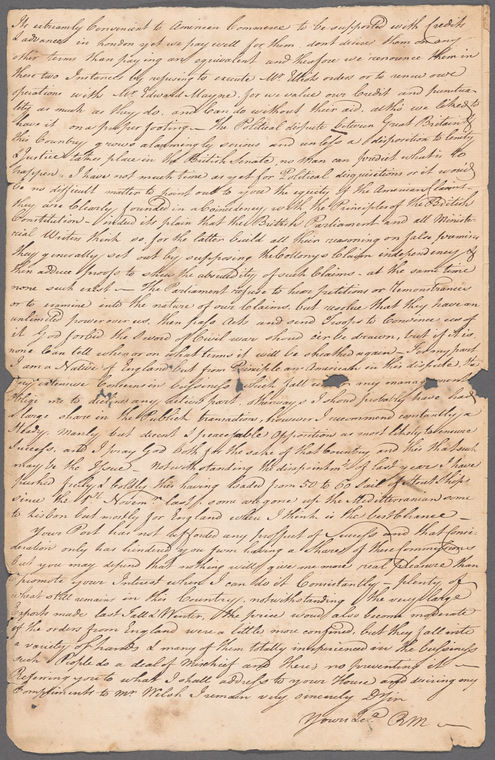 Its extreamly Convenient to American Commerce to be supported with Credit
& advances in London yet we pay well for them, dont desire them on any
other terms than paying an equivalent and therefore we renounce them in
these two Instances by refusing to execute Mr Elliots orders or to renew our
operations with Mr Edward Mayne, for we value our Credit and punctua
lity as much as they do, and Can do without their aid, altho we liked to
have it on a proper footing — The Political dispute between Great Britain &
this Country grows alarmingly serious and unless a disposition to lenity
& Justice takes place in the British Senate, no Man can predict what is to
happen, I have not much time as yet for Political disquisitions or it wou'd
be no difficult matter to point out to you the equity of the American Claims
they are Clearly founded in a Coincidency with the Principles of the British
Constitution — indeed its plain that the British Parliament and all Ministe
rial Writers think so, for the latter build all their reasoning on false premises
they generally set out by supposing the Collonys Claim independency &
then adduce proofs to shew the absurdity of such Claims, at the same time
none such exist — The Parliament refuse to hear petitions or Remonstrances
or to examine into the nature of our Claims, but resolve that they have an
unlimited power over us, then pass Acts and send Troops to Convince us of
it. God forbid the Sword of Civil war shou'd ever be drawn, but if it is
none Can tell when or on what terms it will be sheathed again — For my part
I am a Native of England but from Principle am American in this dispute
extensive Concerns in business which fall under my manage
oblige me to decline any active part, otherways I should probably have had
a large share in the Publick transactions, however I recommend constantly a
steady, manly but decent & peaceable Opposition as most likely to ensure
Success, and I pray God both for the sake of that Country and this that such
may be the Issue. Notwithstanding the disapointmts of last year I have
pushed pretty Boldly this having loaded from 50 to 60 Sail of Stout Ships
since the 1st Novemr last, some are gone up the Mediterranean some
to Lisbon but mostly for England where I think is the best Chance —
Your Port has not afforded any prospect of Success and that Consi
deration only has hindred you from having a Share of these Commissions
but you may depend that nothing will give me more real pleasure than
to promote your Interest when I can do it Consistantly — plenty of
wheat still remains in this Country, notwithstanding the very large
exports made last Fall & Winter, & the price would also become moderate
if the orders from England were a little more confined, but they fall into
a variety of hands & many of them totally inexperienced in the business
such People do a deal of Mischief and there is no preventing it —
Refering you to what I shall address to your House and desiring my
Compliments to Mr Welsh I remain very sincerely D Sir
Yours &ca RM —